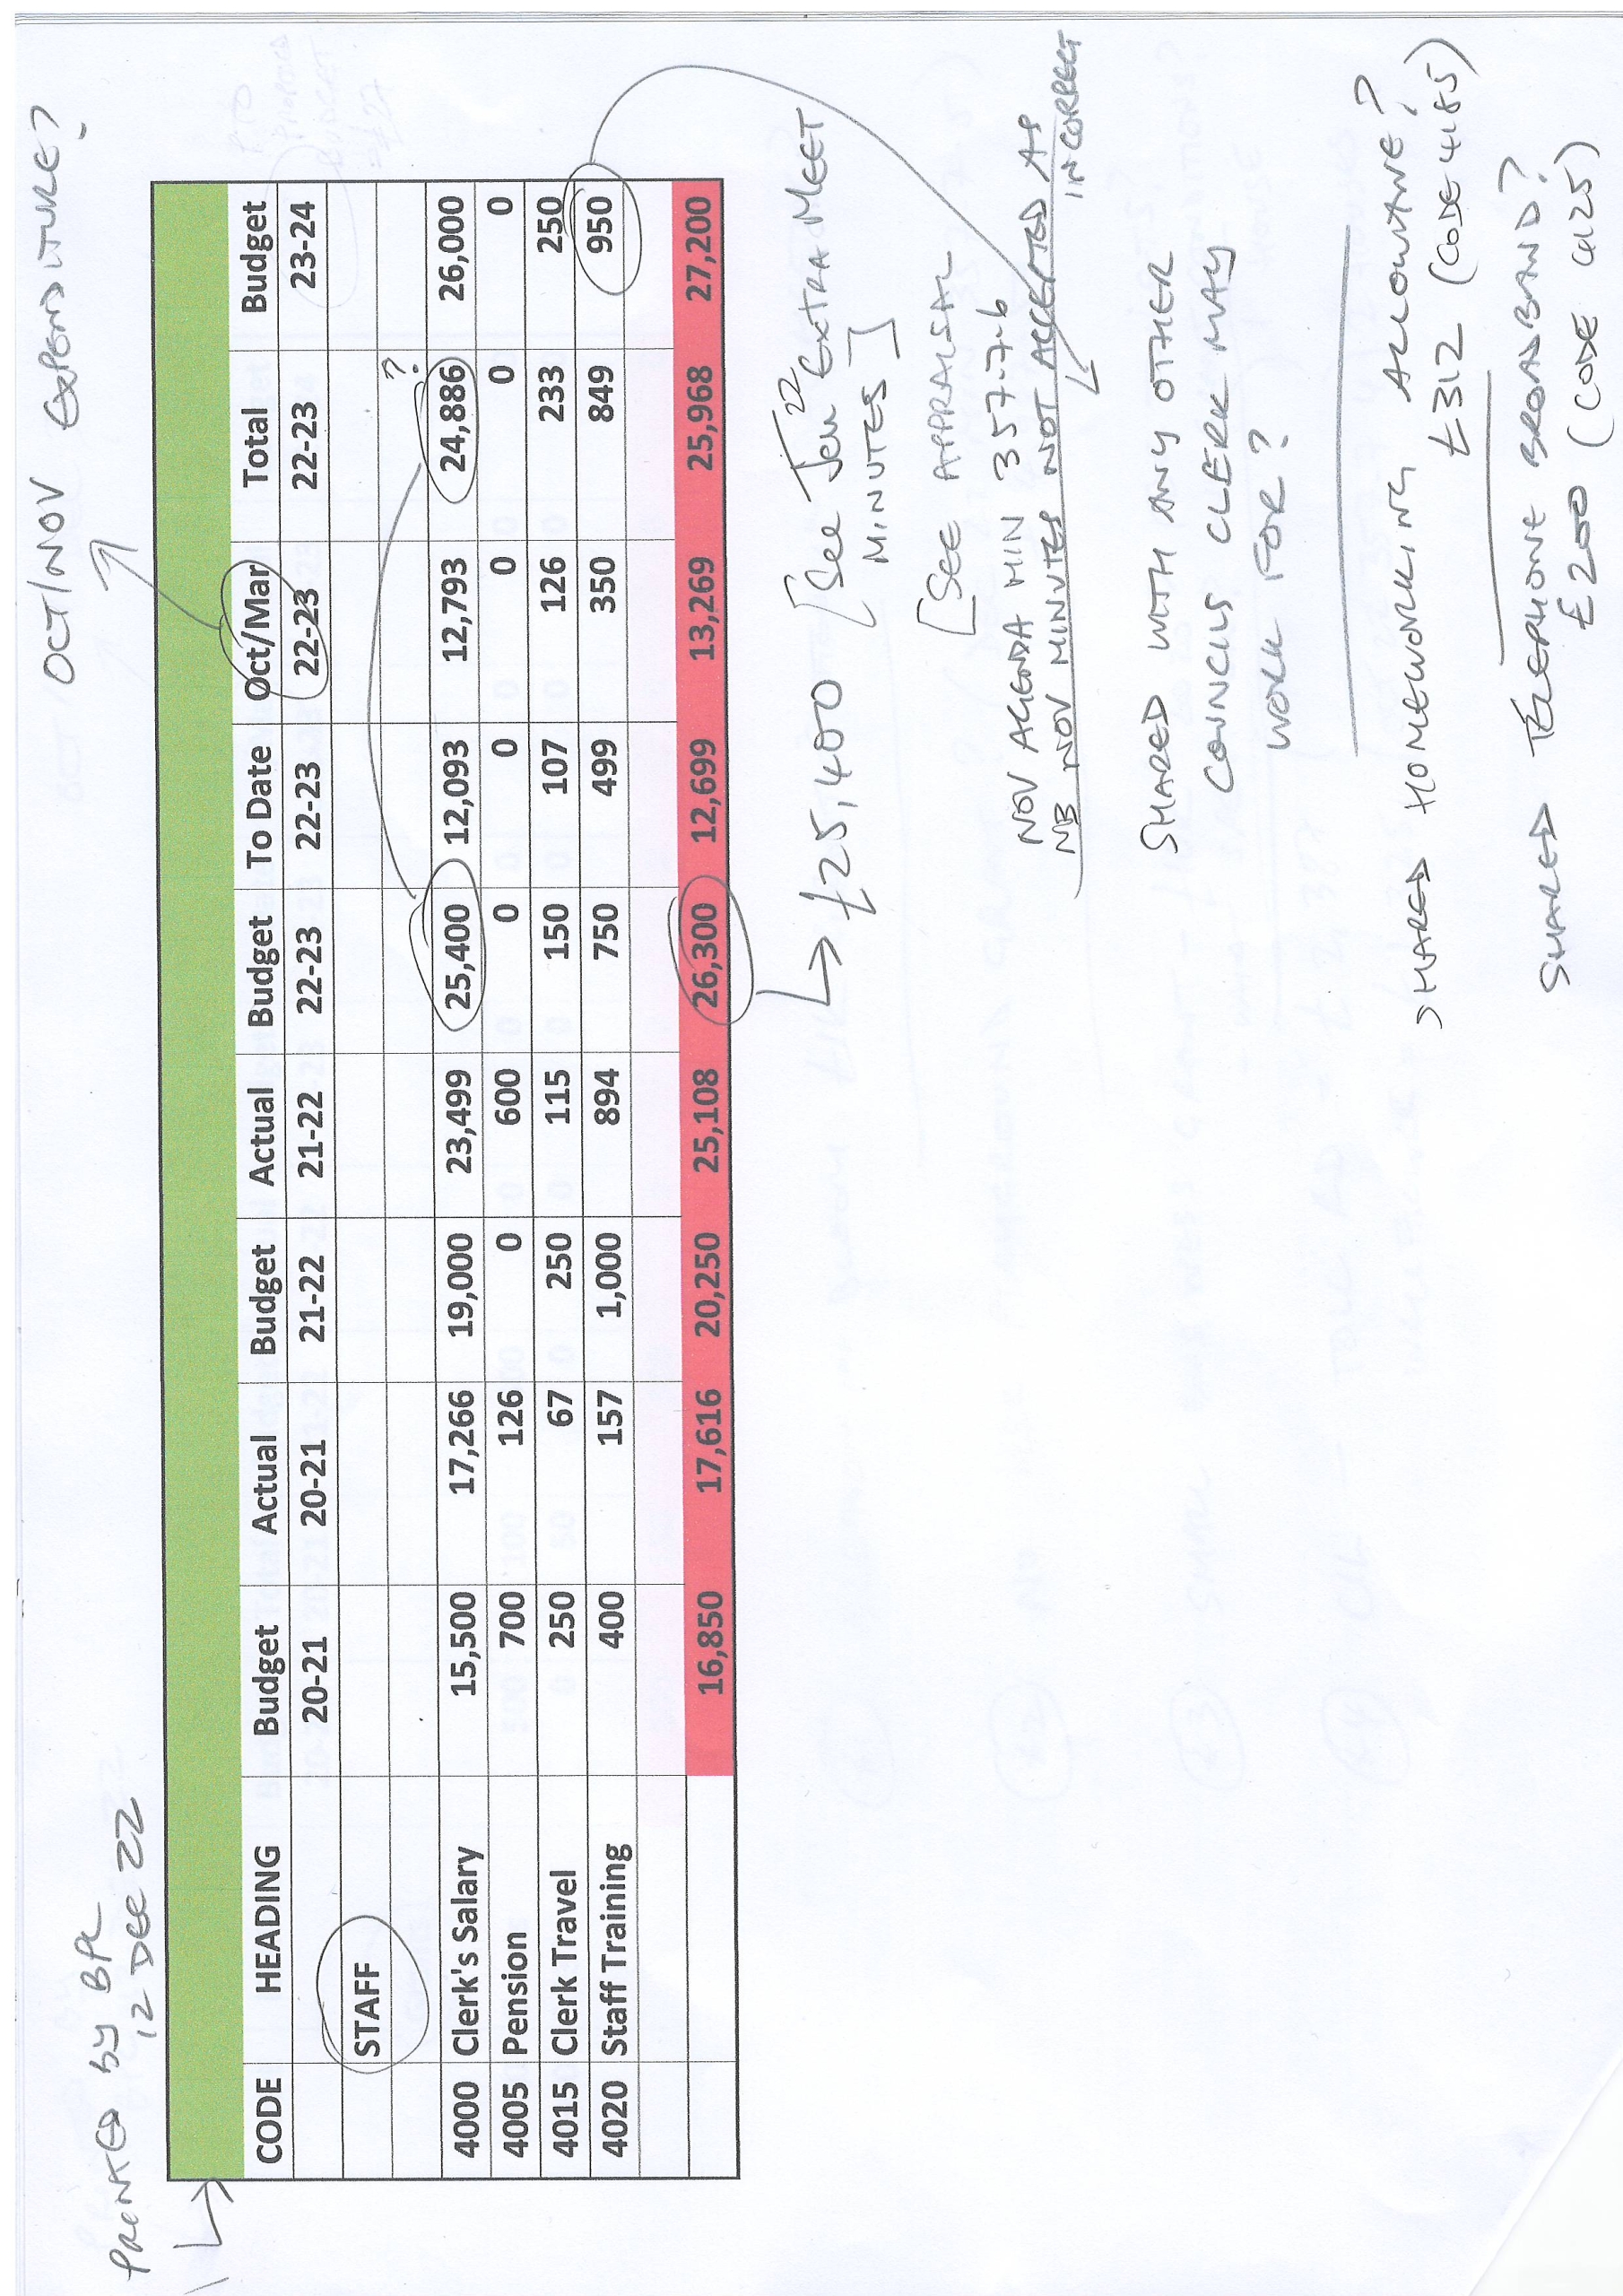 PRINTED BY BPC
12 DEC 22
OCT/NOV EXPENDITURE?
CODE HEADING Budget Actual Budget Actual Budget To Date Oct/Mar Total Budget
20-21 20-21 21-22 21-22 22-23 22-23 22-23 22-23 23-24
STAFF
?
4000 Clerk's Salary 15,500 17,266 19,000 23,499 25,400 12,093 12,793 24,886 26,000
4005 Pension 700 126 0 600 0 0 0 0 0
4015 Clerk Travel 250 67 250 115 150 107 126 233 250
4020 Staff Training 400 157 1,000 894 750 499 350 849 950
16,850 17,616 20,250 25,108 26,300 12,699 13,269 25,968 27,200
£25,400 [SEE JAN 22 EXTRA MEET
MINUTES]
[SEE APPRAISAL
NOV AGENDA MIN 357-7-b
NB NOV MINUTES NOT ACCEPTED AS
INCORRECT
SHARED WITH ANY OTHER
COUNCILS CLERK MAY
WORK FOR?
SHARED HOMEWORKING ALLOWANCE?
£312 (CODE 4185)
SHARED TELEPHONE BROADBAND?
£200 (CODE 4125)